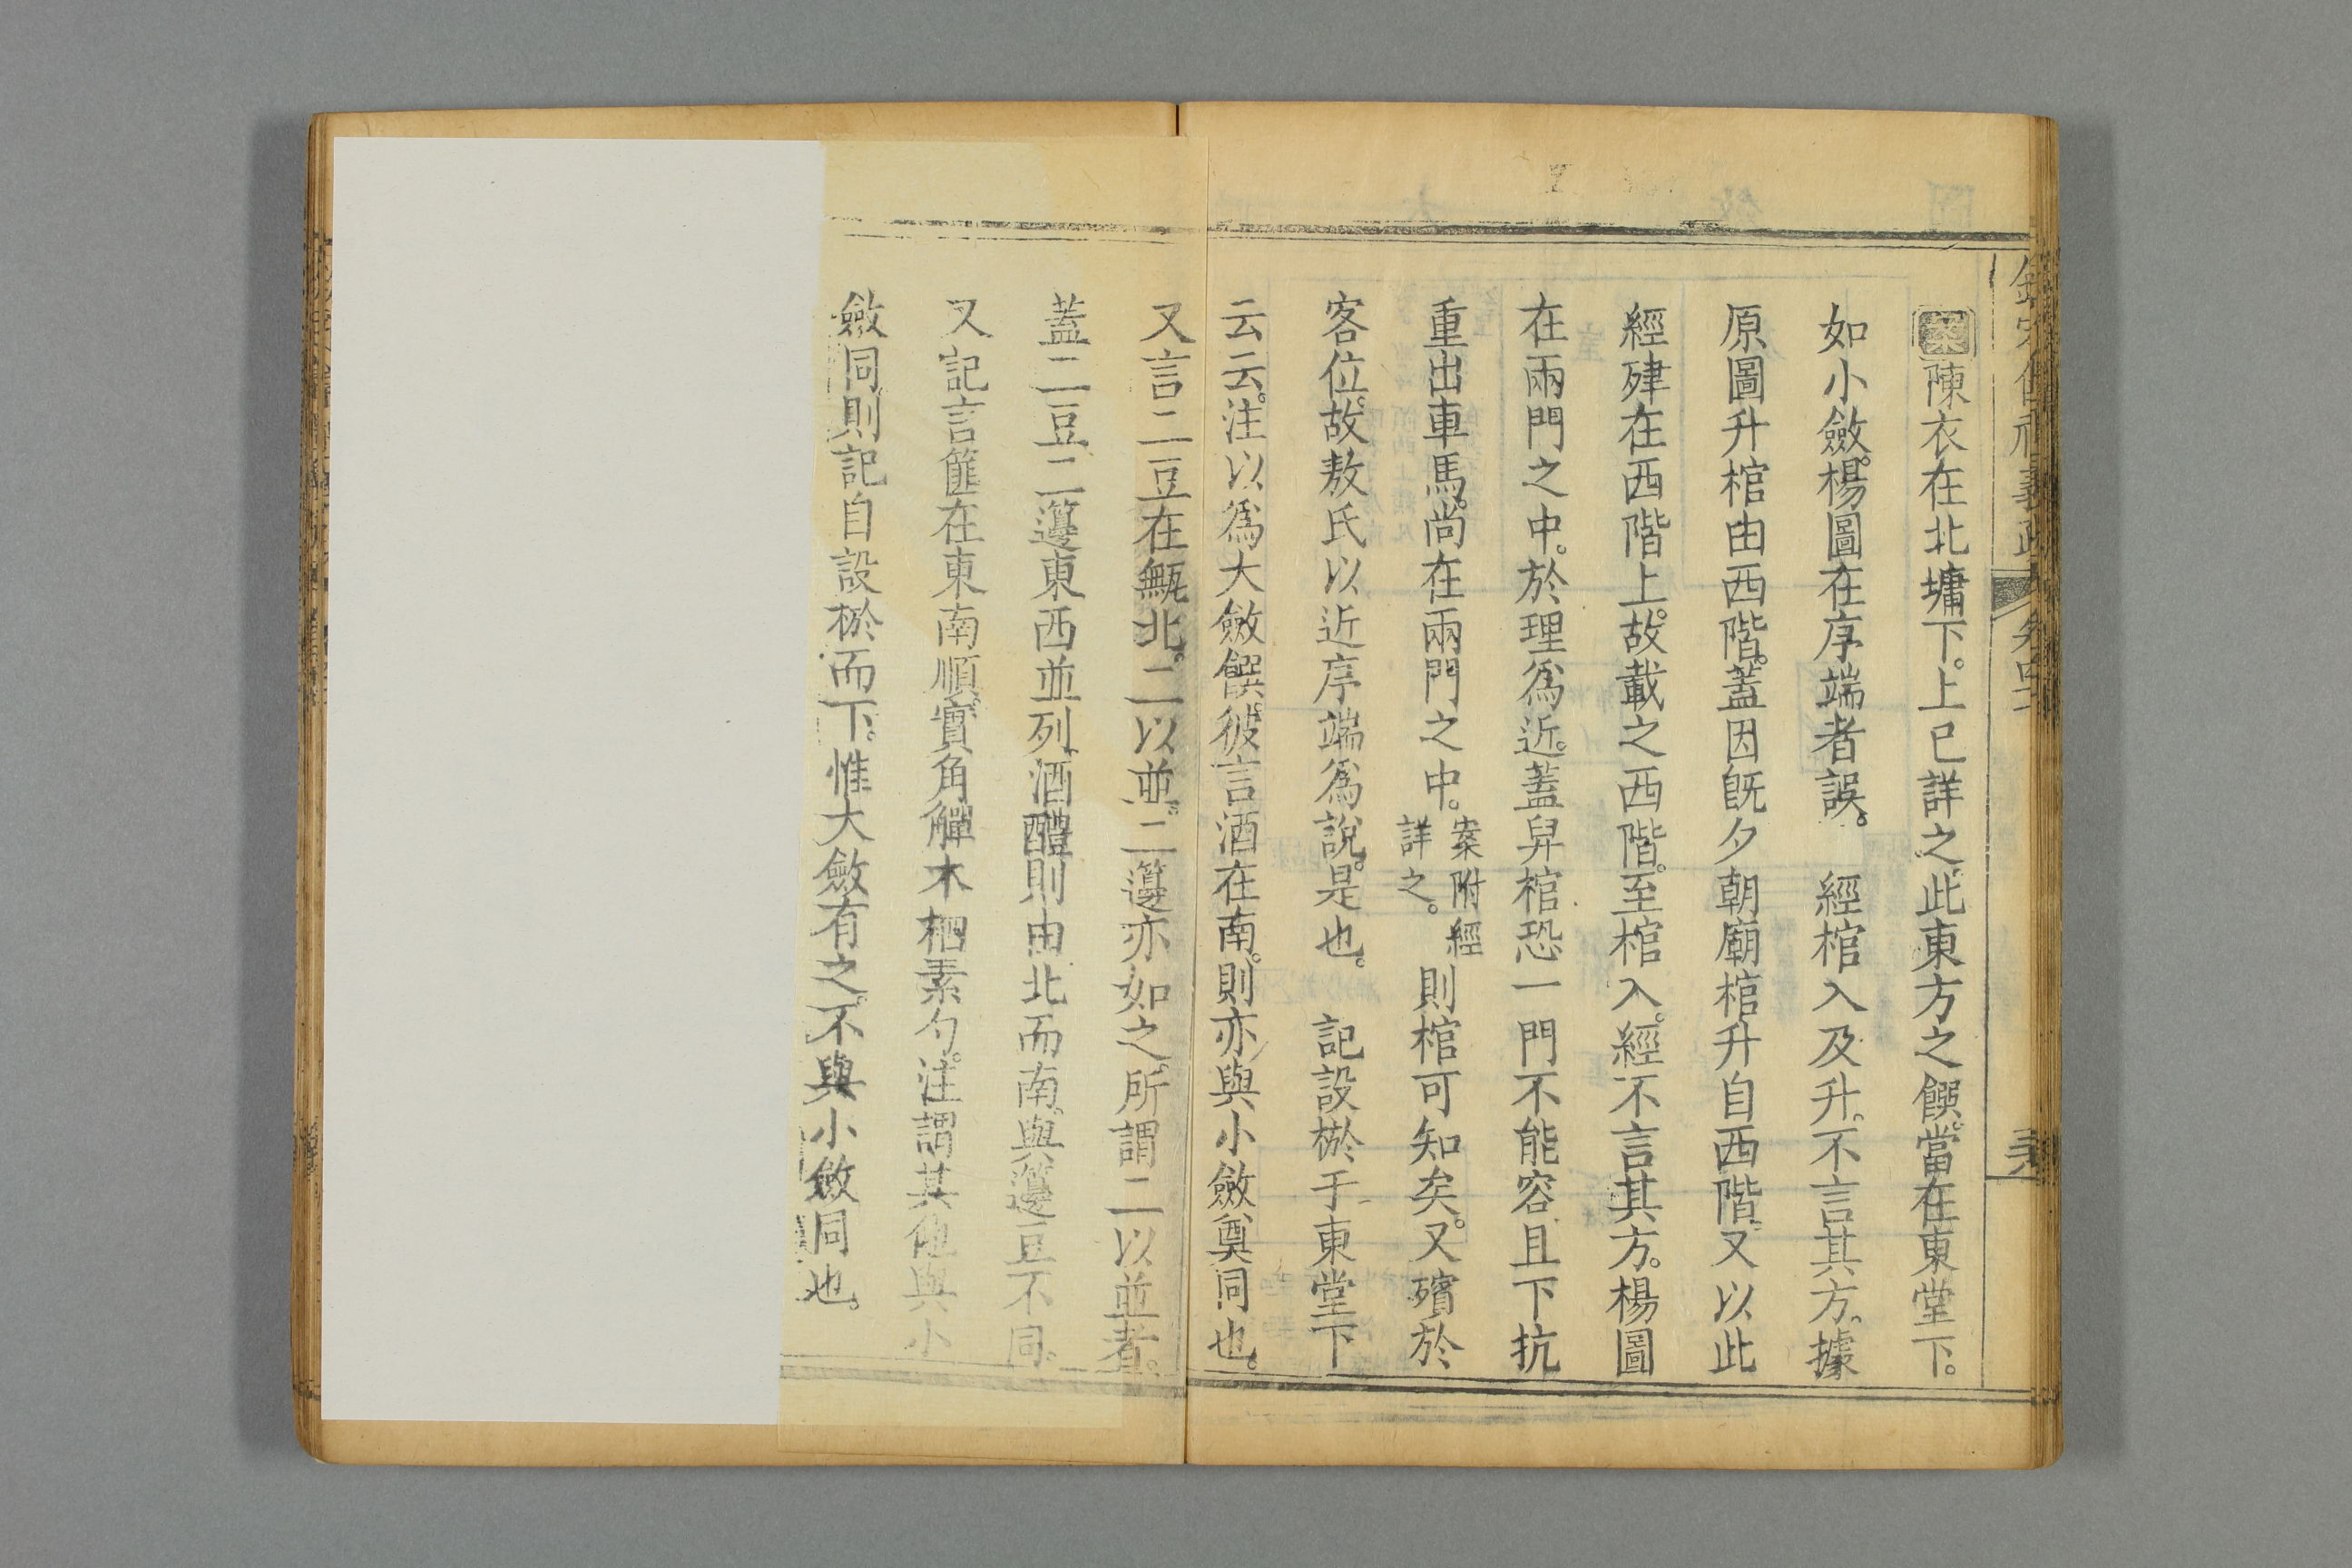 案陳衣在北墉下。上已詳之。此東方之饌。當在東堂下。
如小斂。楊圖在序端者誤。 經棺入及升。不言其方。據
原圖升棺由西階。蓋因旣夕朝廟棺升自西階。又以此
經肂在西階上。故載之西階。至棺入。經不言其方。楊圖
在兩門之中。於理爲近。蓋舁棺恐一門不能容。且下抗
重出車馬。尚在兩門之中。案附經詳之。則棺可知矣。又殯於
客位。故敖氏以近序端爲說。是也。 記設棜于東堂下
云云。注以爲大斂饌。彼言酒在南。則亦與小斂奠同也。
又言二豆在甒北。二以並。二籩亦如之。所謂二以並者。
蓋二豆二籩東西並列。酒醴則由北而南。與籩豆不同。
又記言篚在東南順。實角觶木柶素勺。注謂其他與小
斂同。則記自設棜而下。惟大斂有之。不與小斂同也。